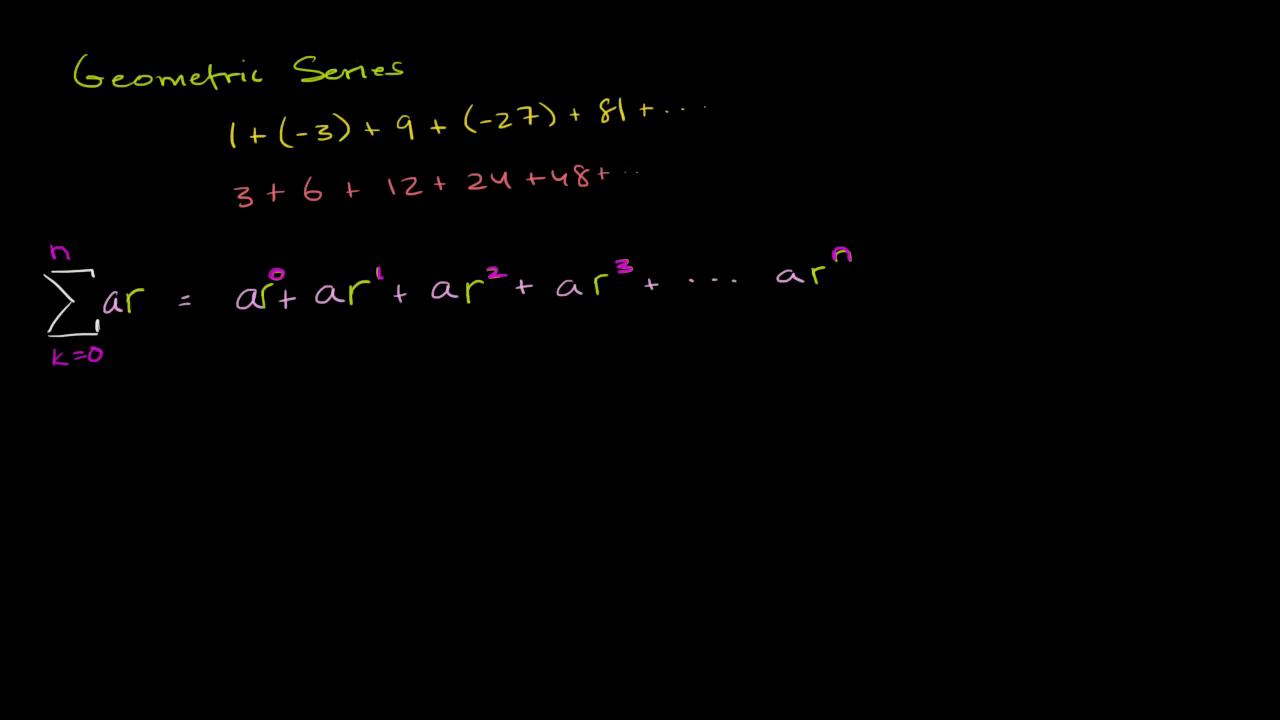 Geometric Series
1 + (-3) + 9 + (-27) + 81 + ...
3 + 6 + 12 + 24 + 48 + ...
n
∑ ar = ar⁰ + ar¹ + ar² + ar³ + ... arⁿ
k=0